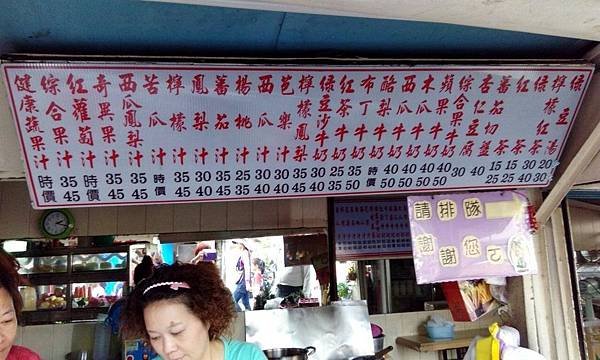 綠豆湯 20 30
檸檬紅茶 30 40
綠茶 15 25
紅茶 15 25
蕃茄切盤 40
杏仁豆腐 30
綜合果牛奶 40 50
蘋果牛奶 40 50
木瓜牛奶 40 50
西瓜牛奶 40 50
酪梨牛奶 時價
布丁牛奶 35 50
紅茶牛奶 25 35
綠豆沙牛奶 30 40
檸檬鳳梨汁 35 45
芭樂汁 30 40
西瓜汁 25 30
楊桃汁 35 45
蕃茄汁 35 40
鳳梨汁 35 45
檸檬汁 時價
苦瓜汁 35 45
西瓜鳳梨汁 35 45
奇異果汁 35 45
紅蘿蔔汁 時價
綜合果汁 35 45
健康蔬果汁 時價
請排隊
謝謝您